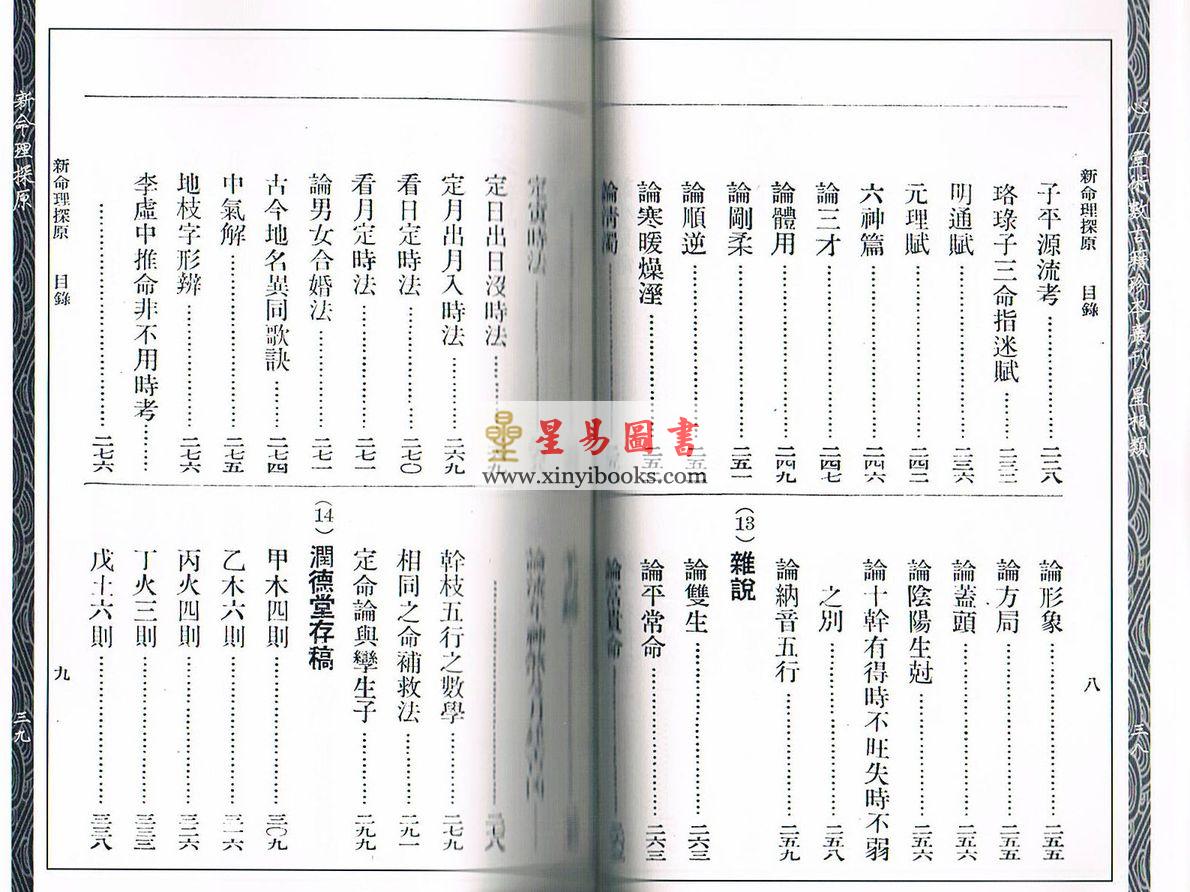 新命理探原 目錄
子平源流考……二二八
珞琭子三命指迷賦……二三二
明通賦……二三六
元理賦……二四二
六神篇……二四六
論三才……二四七
論體用……二四九
論剛柔……二五一
論順逆……二五
論寒暖燥溼……二五
論清濁
論形象……二五五
論方局……二五五
論蓋頭……二五六
論陰陽生尅……二五六
論十幹有得時不旺失時不弱
之別……二五八
論納音五行……二五九
(13)雜說
論雙生……二六三
論平常命……二六三
論富貴命
八
三八
定寅時法
定日出日沒時法
定月出月入時法……二六九
看日定時法……二七〇
看月定時法……二七一
論男女合婚法……二七一
古今地名異同歌訣……二七四
中氣解……二七五
地枝字形辨……二七六
李虛中推命非不用時考……
……二七六
論流年神煞及月建吉凶
……二七八
幹枝五行之數學……二七九
相同之命補救法……二九一
定命論與孿生子……二九九
(14)潤德堂存稿
甲木四則……三〇九
乙木六則……三一六
丙火四則……三二六
丁火三則……三三三
戊土六則……三三八
新命理探原 目錄
九
新命理探原
三九
星易圖書
www.xinyibooks.com